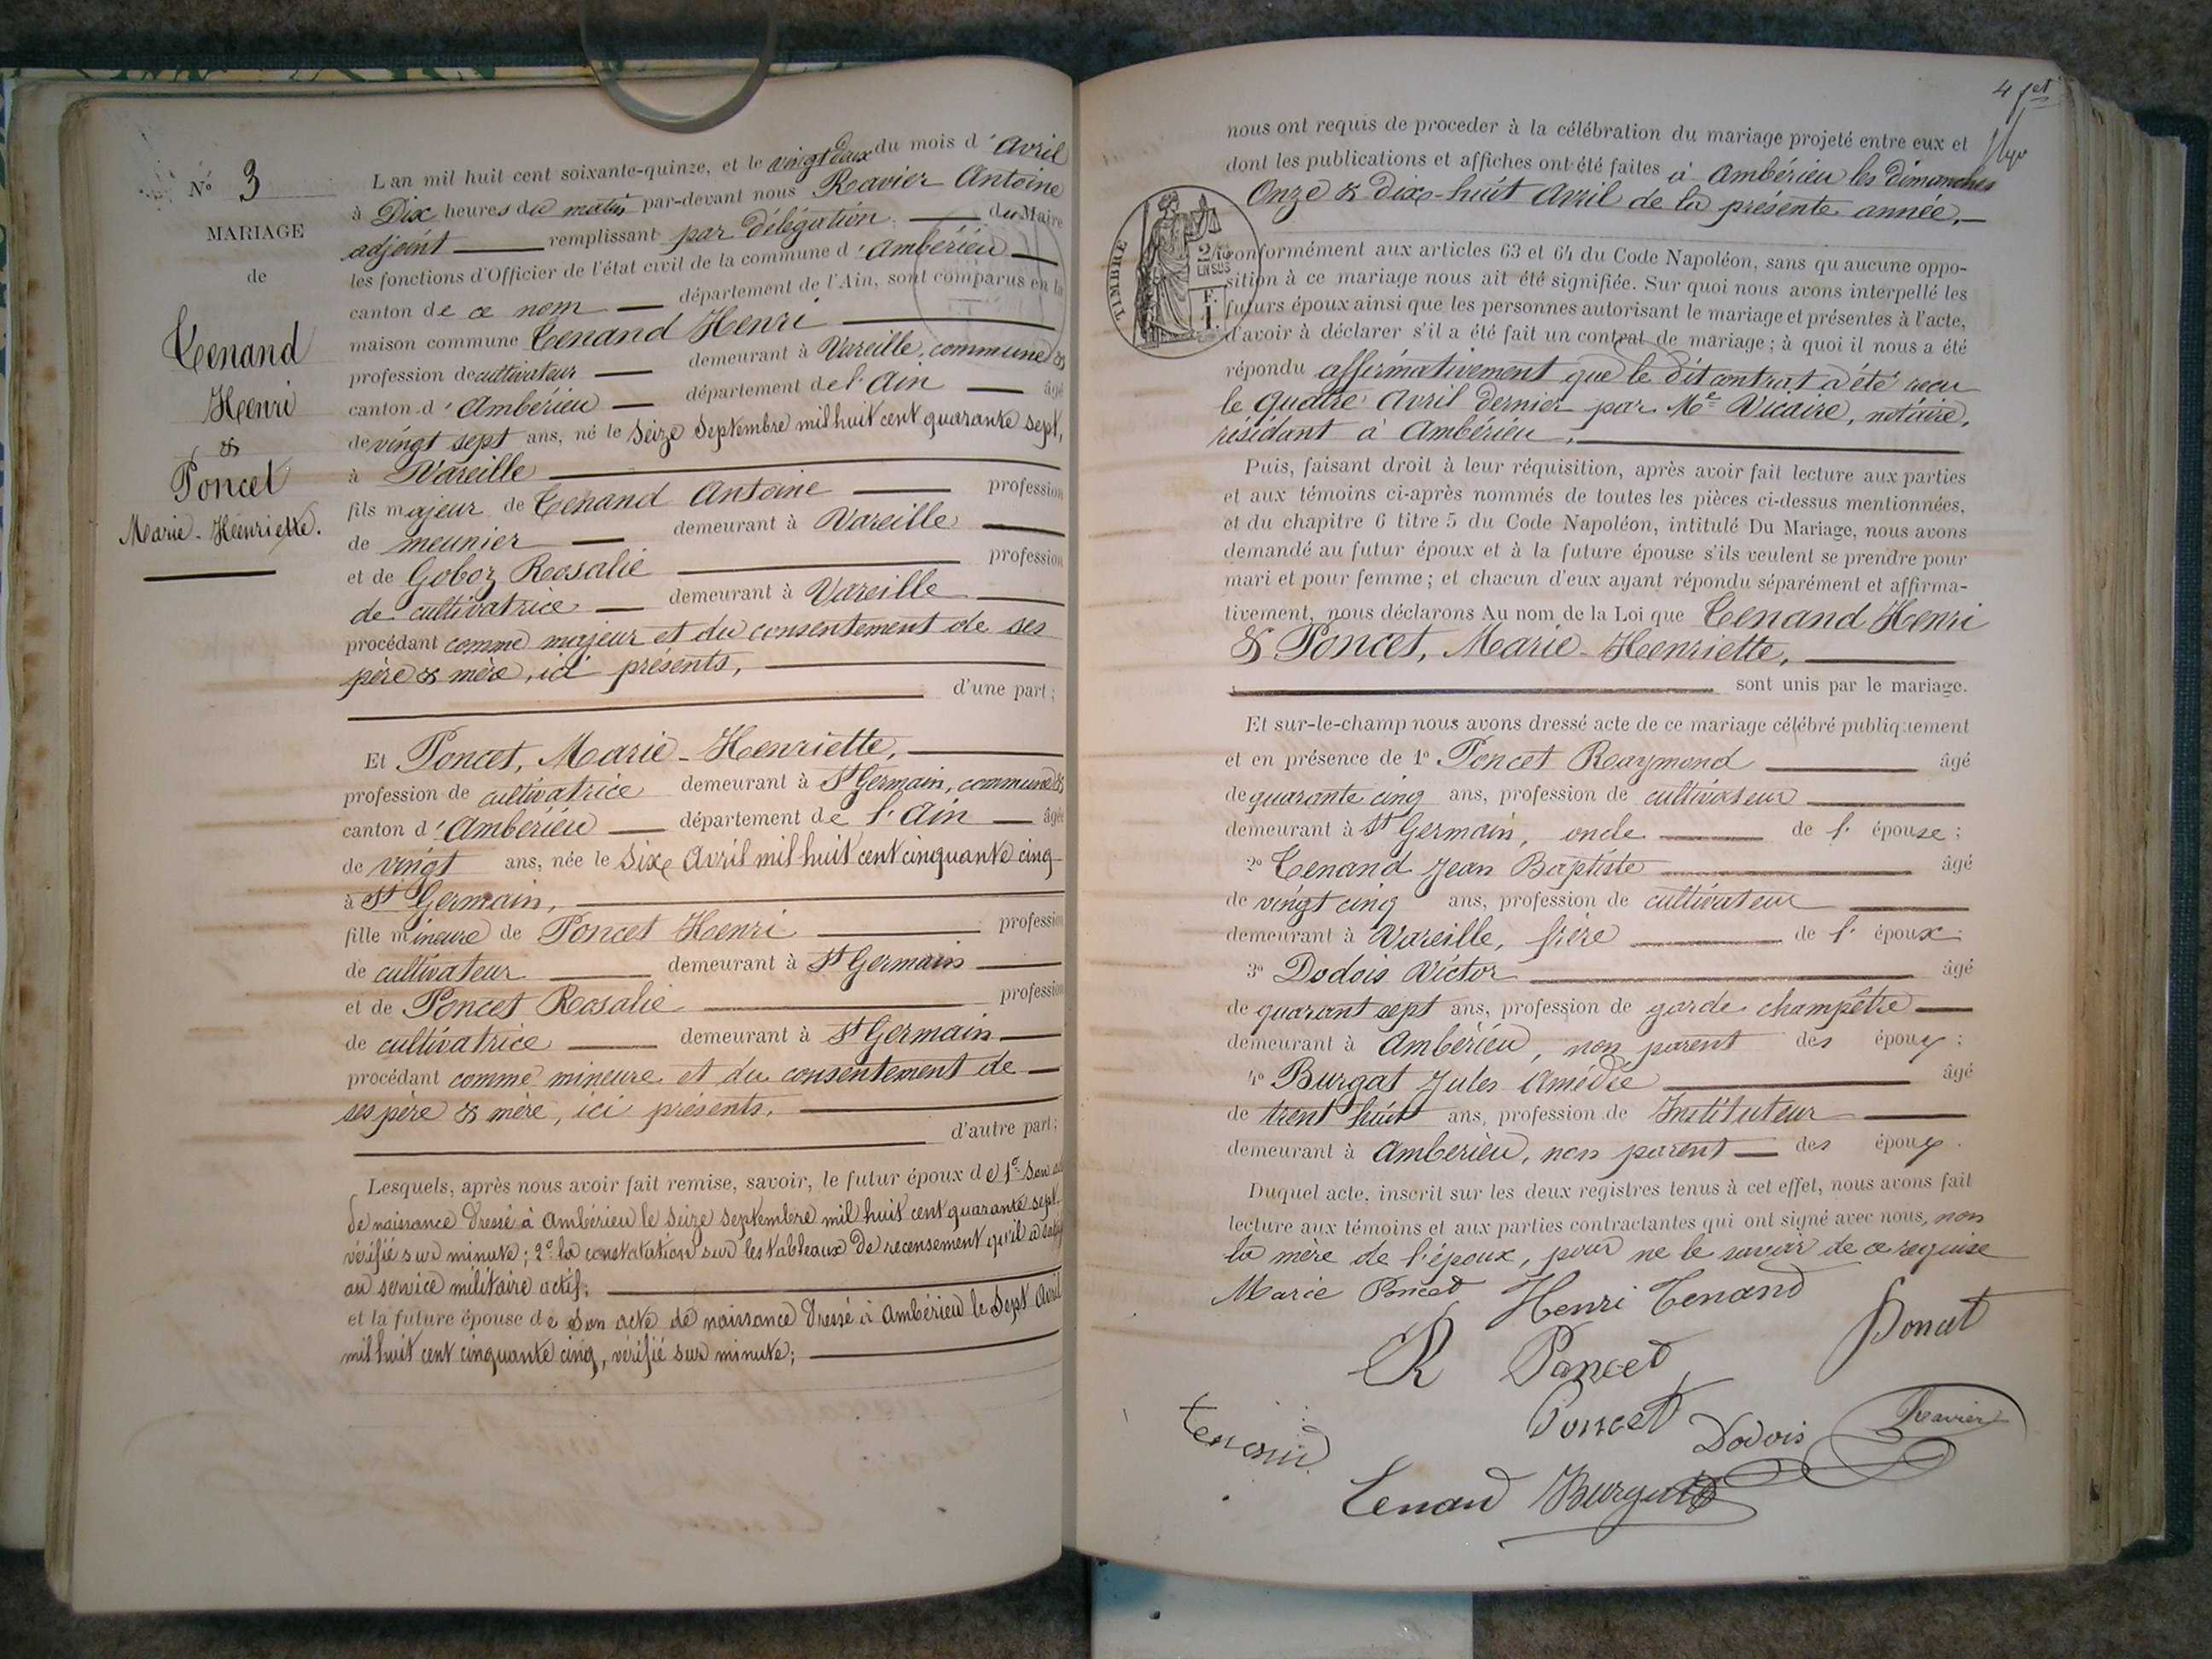 N° 3
MARIAGE
de
Tenand
Henri
&
Poncet
Marie-Henriette.
L'an mil huit cent soixante-quinze, et le vingt deux du mois d'Avril
à Dix heures du matin par-devant nous Ravier Antoine
adjoint remplissant par délégation du Maire
les fonctions d'Officier de l'état civil de la commune d'Ambérieu
canton de ce nom département de l'Ain, sont comparus en la
maison commune Tenand Henri
profession de cultivateur demeurant à Vareille, commune &
canton d'Ambérieu département de l'Ain âgé
de vingt sept ans, né le Seize Septembre mil huit cent quarante sept,
à Vareille
fils majeur de Tenand Antoine profession
de meunier demeurant à Vareille
et de Goboz Rosalie profession
de cultivatrice demeurant à Vareille
procédant comme majeur et du consentement de ses
père & mère, ici présents,
d'une part;
Et Poncet, Marie-Henriette,
profession de cultivatrice demeurant à St Germain, commune &
canton d'Ambérieu département de l'Ain âgée
de vingt ans, née le Six Avril mil huit cent cinquante cinq
à St Germain,
fille mineure de Poncet Henri profession
de cultivateur demeurant à St Germain
et de Poncet Rosalie profession
de cultivatrice demeurant à St Germain
procédant comme mineure et du consentement de
ses père & mère, ici présents.
d'autre part;
Lesquels, après nous avoir fait remise, savoir, le futur époux de 1° Son
de naissance dressé à Ambérieu le Seize Septembre mil huit cent quarante sept
vérifié sur minute; 2° la constatation sur les tableaux de recensement qu'il a
au service militaire actif;
et la future épouse de Son acte de naissance dressé à Ambérieu le Sept Avril
mil huit cent cinquante cinq, vérifié sur minute;
4
nous ont requis de proceder à la célébration du mariage projeté entre eux et
dont les publications et affiches ont été faites à Ambérieu les Dimanches
Onze & Dix-huit Avril de la présente année,
TIMBRE
2/10
EN SUS
F.
1.
conformément aux articles 63 et 64 du Code Napoléon, sans qu'aucune oppo-
sition à ce mariage nous ait été signifiée. Sur quoi nous avons interpellé les
futurs époux ainsi que les personnes autorisant le mariage et présentes à l'acte,
d'avoir à déclarer s'il a été fait un contrat de mariage; à quoi il nous a été
répondu affirmativement que le dit contrat a été reçu
le Quatre Avril dernier par Me Vicaire, notaire,
résidant à Ambérieu.
Puis, faisant droit à leur réquisition, après avoir fait lecture aux parties
et aux témoins ci-après nommés de toutes les pièces ci-dessus mentionnées,
et du chapitre 6 titre 5 du Code Napoléon, intitulé Du Mariage, nous avons
demandé au futur époux et à la future épouse s'ils veulent se prendre pour
mari et pour femme; et chacun d'eux ayant répondu séparément et affirma-
tivement, nous déclarons Au nom de la Loi que Tenand Henri
& Poncet, Marie-Henriette,
sont unis par le mariage.
Et sur-le-champ nous avons dressé acte de ce mariage célébré publiquement
et en présence de 1° Poncet Raymond âgé
de quarante cinq ans, profession de cultivateur
demeurant à St Germain, oncle de l'épouse;
2° Tenand Jean Baptiste âgé
de vingt cinq ans, profession de cultivateur
demeurant à Vareille, frère de l'époux;
3° Dodois Victor âgé
de quarant sept ans, profession de garde champêtre
demeurant à Ambérieu, non parent des époux;
4° Burgat Jules Amédée âgé
de trent huit ans, profession de Instituteur
demeurant à Ambérieu, non parent des époux.
Duquel acte, inscrit sur les deux registres tenus à cet effet, nous avons fait
lecture aux témoins et aux parties contractantes qui ont signé avec nous, non
la mère de l'époux, pour ne le savoir de ce requise
Marie Poncet Henri Tenand
R Poncet Poncet
Poncet Dodois Ravier
tenand
Tenand Burgat